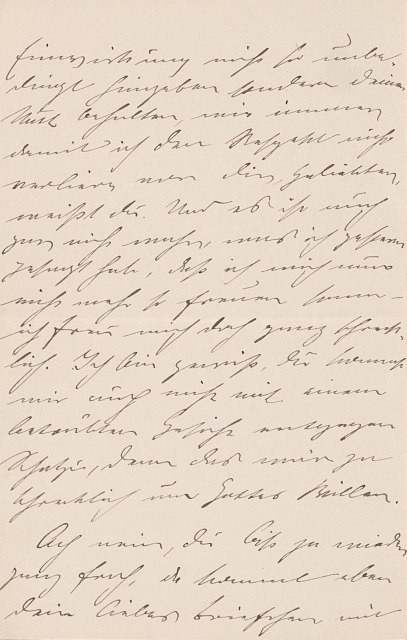 Einwirkung nicht so unbe-
dingt hingeben sondern Deinen
Mut behalten, wie immer,
damit ich den Respekt nicht
verliere vor Dir, Geliebter,
weißt du. Und es ist auch
gar nicht wahr, was ich gestern
gesagt hab, daß ich mich nun
nicht mehr so freuen kann –
ich freu mich doch ganz schreck-
lich. Ich bin gewiß, Du kommst
mir auch nicht mit einem
betrübten Gesicht entgegen
Schatzi, denn das wär zu
schrecklich um Gottes Willen.
Ach nein, du bist ja wieder
ganz froh, da kommt eben
dein liebes Briefchen mit